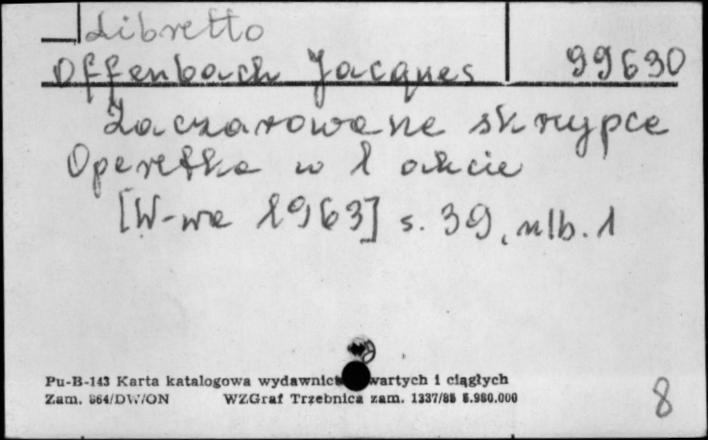 Libretto
Offenbach Jacques 99630
Zaczarowane skrzypce
Operetka w 1 akcie
[W-wa 1963] s. 39, nlb. 1
Pu-B-143 Karta katalogowa wydawnictw zwartych i ciągłych
Zam. 864/DW/ON WZGraf Trzebnica zam. 1337/85 5.980.000
8